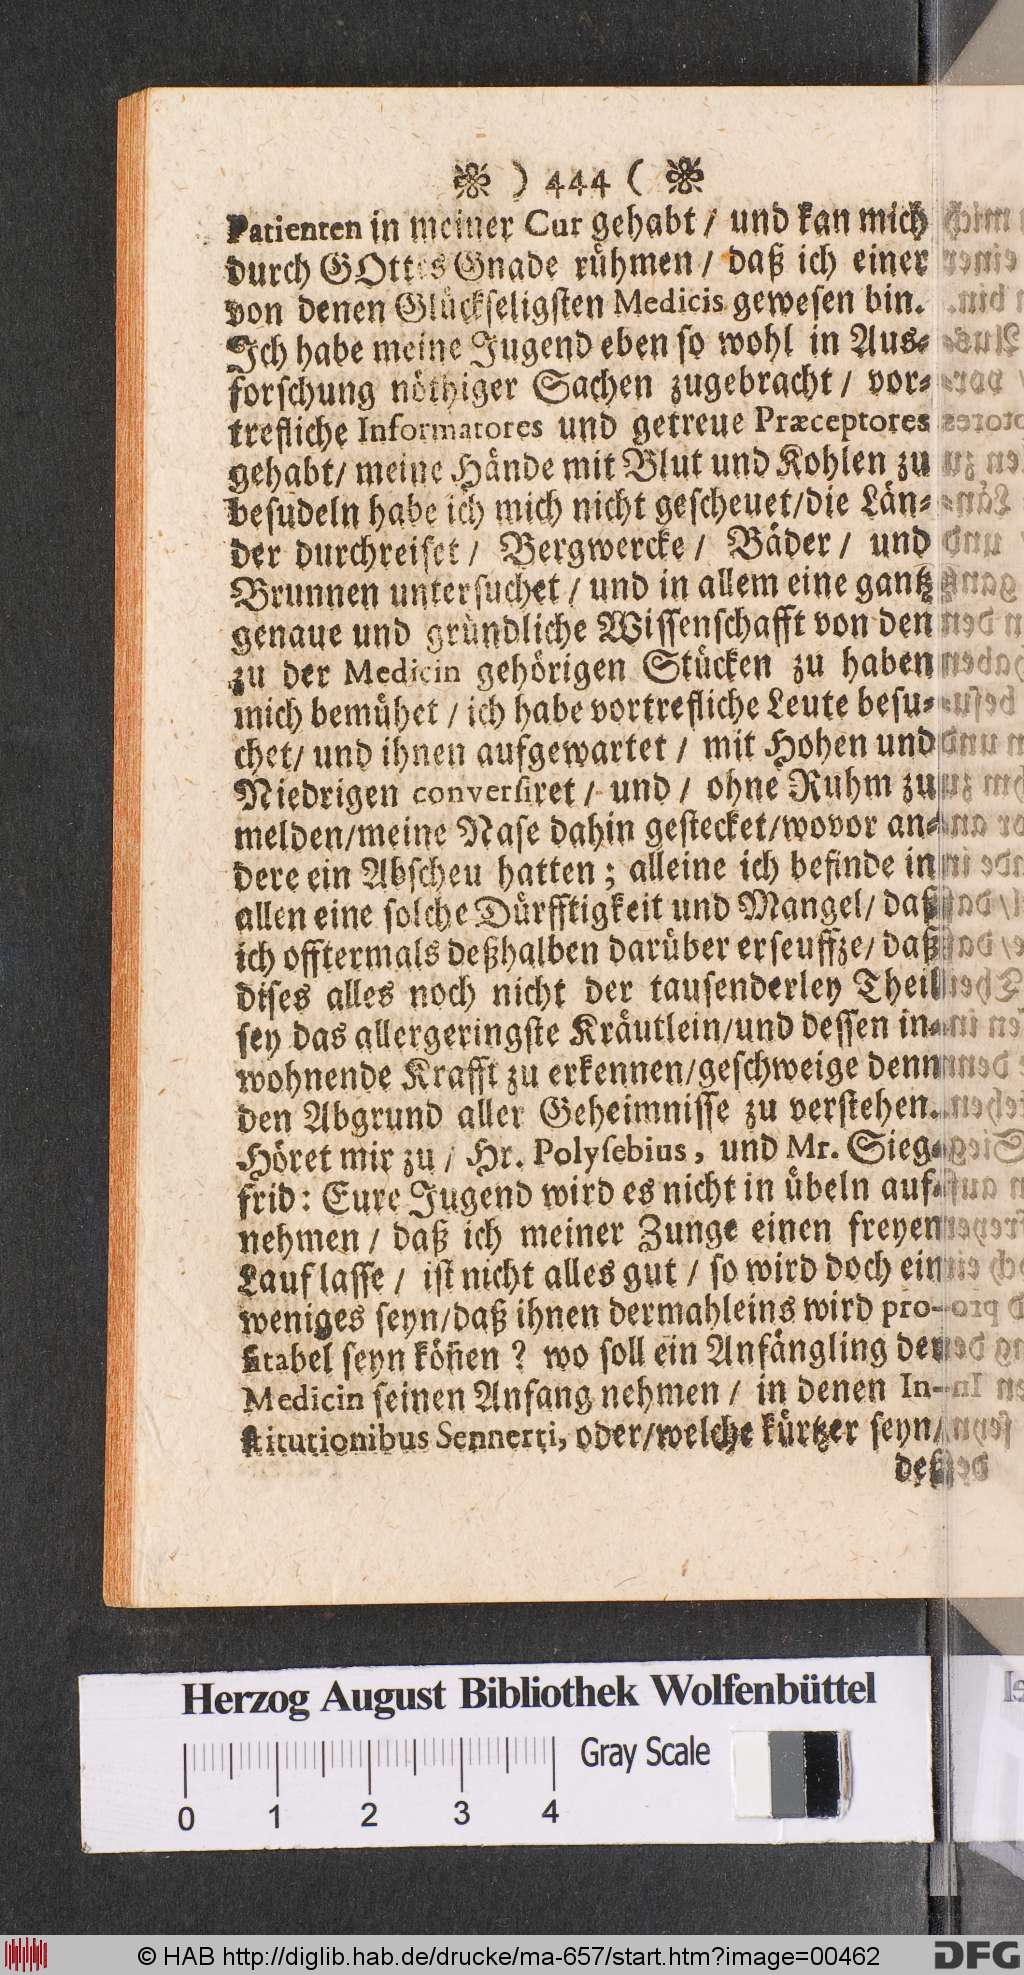 ❀ ) 444 ( ❀
Patienten in meiner Cur gehabt / und kan mich
durch GOttes Gnade rühmen / daß ich einer
von denen Glückseligsten Medicis gewesen bin.
Ich habe meine Jugend eben so wohl in Aus-
forschung nöthiger Sachen zugebracht / vor-
trefliche Informatores und getreue Præceptores
gehabt/ meine Hände mit Blut und Kohlen zu
besudeln habe ich mich nicht gescheuet/die Län-
der durchreiset / Bergwercke / Bäder / und
Brunnen untersuchet / und in allem eine gantz
genaue und gründliche Wissenschafft von den
zu der Medicin gehörigen Stücken zu haben
mich bemühet / ich habe vortrefliche Leute besu-
chet/ und ihnen aufgewartet / mit Hohen und
Niedrigen conversiret / und / ohne Ruhm zu
melden/meine Nase dahin gestecket/wovor an-
dere ein Abscheu hatten ; alleine ich befinde in
allen eine solche Dürfftigkeit und Mangel/ daß
ich offtermals deßhalben darüber erseuffze/ daß
dises alles noch nicht der tausenderley Theil
sey das allergeringste Kräutlein/und dessen in-
wohnende Krafft zu erkennen/geschweige denn
den Abgrund aller Geheimnisse zu verstehen.
Höret mir zu / Hr. Polysebius, und Mr. Sieg-
frid : Eure Jugend wird es nicht in übeln auf-
nehmen / daß ich meiner Zunge einen freyen
Lauf lasse / ist nicht alles gut / so wird doch ein
weniges seyn/daß ihnen dermahleins wird pro-
fitabel seyn kön̄en ? wo soll ein Anfängling der
Medicin seinen Anfang nehmen / in denen In-
stitutionibus Sennerti, oder/welche kürtzer seyn/
deß
Herzog August Bibliothek Wolfenbüttel
Gray Scale
0 1 2 3 4
© HAB http://diglib.hab.de/drucke/ma-657/start.htm?image=00462
DFG